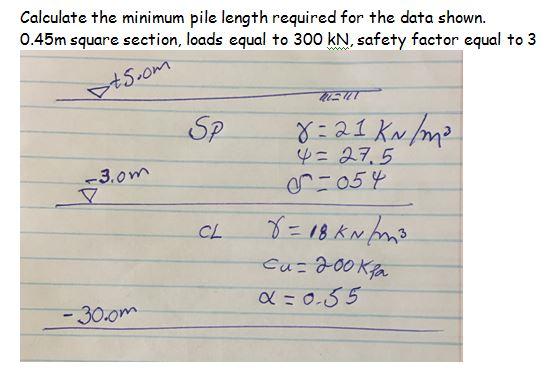 Calculate the minimum pile length required for the data shown.
0.45m square section, loads equal to 300 kN, safety factor equal to 3
+5.0m
SP γ = 21 KN/m³
φ = 27.5
-3.0m δ = 054
CL γ = 18 KN/m³
Cu = 200 Kpa
α = 0.55
-30.0m